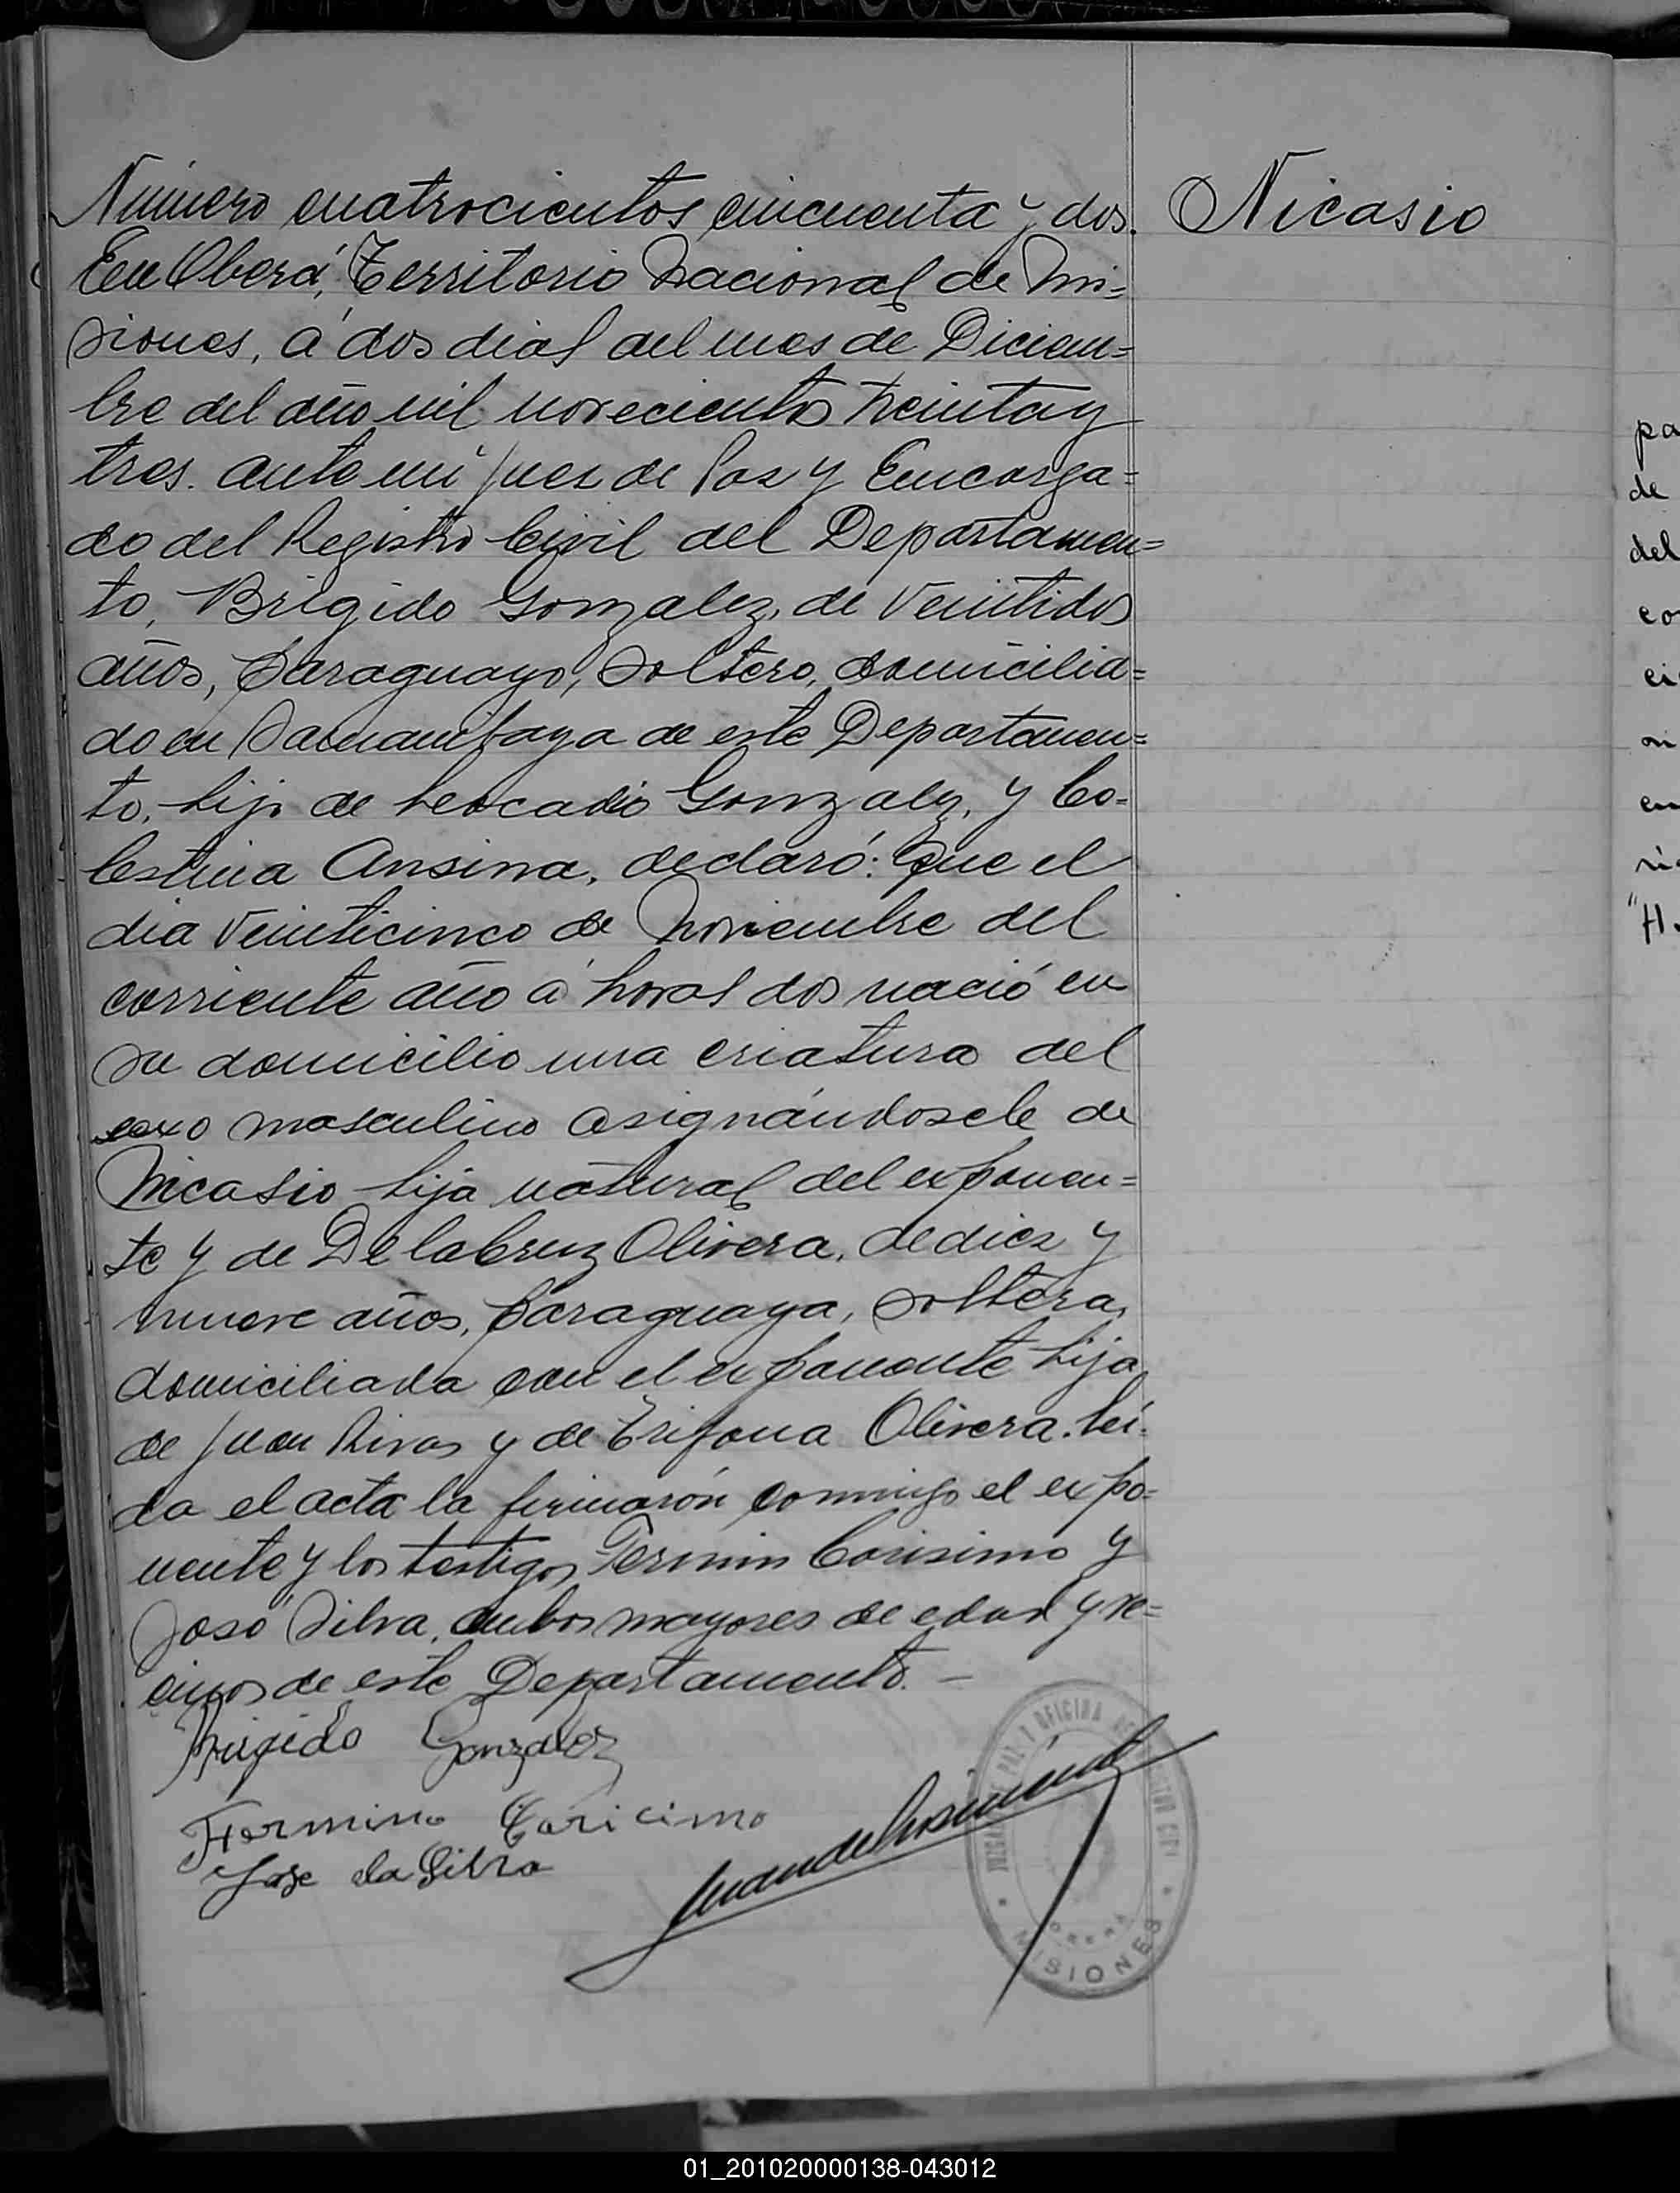 Número cuatrocientos cincuenta y dos.
Nicasio
En Oberá, Territorio Nacional de Mi=
siones, á dos dias del mes de Diciem=
bre del año mil novecientos treinta y
tres. ante mi Juez de Paz y Encarga=
do del Registro Civil del Departamen=
to, Brigido Gonzalez, de veintidos
años, paraguayo, soltero, domicilia=
do en de este Departamen=
to, hijo de Leocadio Gonzalez, y Ce=
lestina Ansina, declaró: Que el
dia veinticinco de Noviembre del
corriente año á horas dos nació en
su domicilio una criatura del
sexo masculino asignándosele de
Nicasio hija natural del exponen=
te y de De la Cruz Olivera, de diez y
nueve años, paraguaya, soltera,
domiciliada con el exponente hija
de Juan Rivas y de Olivera. Leí=
da el acta la firmarón conmigo el expo=
nente y los testigos Fermin Carisimo y
José Silva, ambos mayores de edad y ve=
cinos de este Departamento. —
Brigido Gonzalez
Fermino Caricimo
Jose da Silva
JUZGADO DE PAZ Y OFICINA DEL REGISTRO CIVIL
OBERÁ
MISIONES
pa
de
del
co
ci
en
"H.
01_201020000138-043012